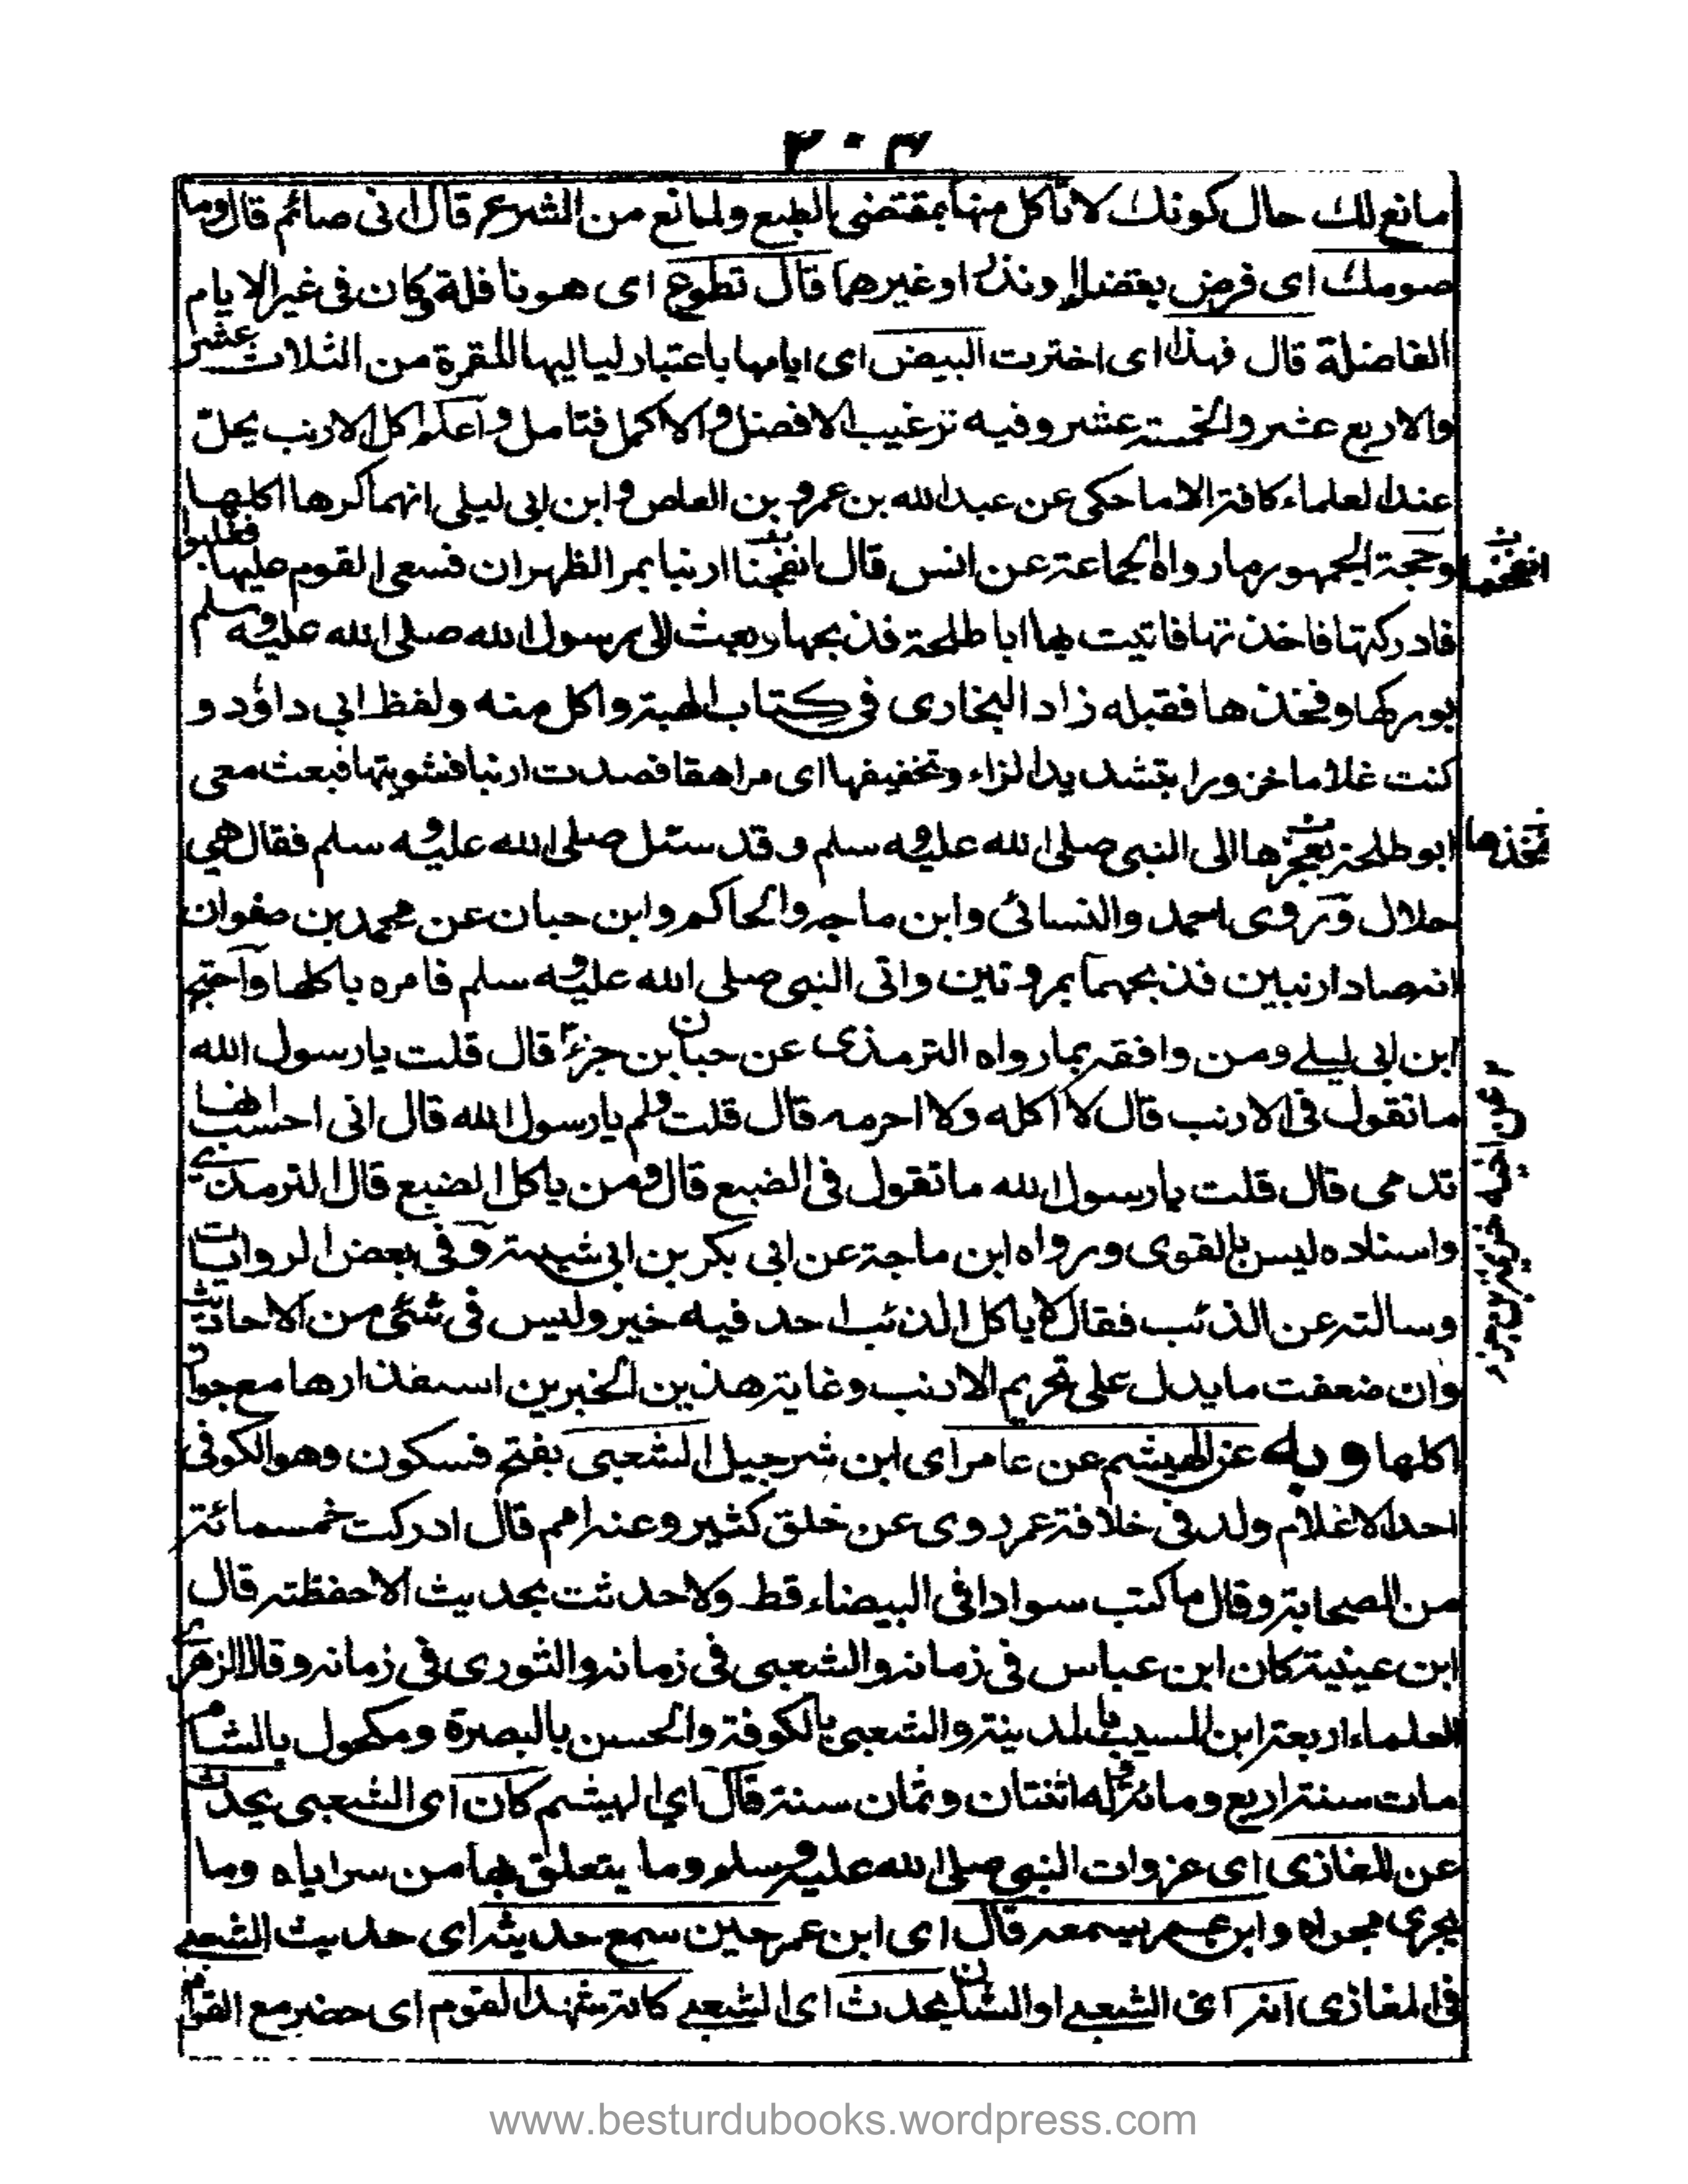 ٣٠٣
مانع لك حال كونك لا تأكل منها بمقتضى الطبع ولمانع من الشرع قال انى صائم قال وما
صومك اى فرض بقضاء ونذر او غيرهما قال تطوع اى هو نافلة وكان فى غير الايام
الفاضلة قال فهذا اى اخترت البيض اى ايامها باعتبار لياليها المقمرة من الثلاث عشر
والاربع عشر والخمسة عشر وفيه ترغيب الافضل والاكمل فتامل واعلم اكل الارنب يحلّ
عند العلماء كافة الا ما حكى عن عبد الله بن عمرو بن العاص وابن ابى ليلى انهما كرها اكلها
وحجة الجمهور مارواه الجماعة عن انس قال انفجنا ارنبا بمر الظهران فسعى القوم عليها فغلبوا
انفجنا
فادركتها فاخذتها فاتيت بها ابا طلحة فذبحها وبعث الى رسول الله صلى الله عليه وسلم
بوركها وفخذها فقبله زاد البخارى فى كتاب الهبة واكل منه ولفظ ابى داؤد و
كنت غلاما خزورا بتشديد الزاء وتخفيفها اى مراهقا فصدت ارنبا فشويتها فبعث معى
ابو طلحة بعجزها الى النبى صلى الله عليه وسلم وقد سئل صلى الله عليه وسلم فقال هى
فخذها
حلال وروى احمد والنسائى وابن ماجه والحاكم وابن حبان عن محمد بن صفوان
انه صاد ارنبين فذبحهما بمروتين واتى النبى صلى الله عليه وسلم فامره باكلها واحتج
ابن ابى ليلے ومن وافقه بمارواه الترمذى عن حبان بن جزء٢ قال قلت يارسول الله
٢ عن اخيه خزيمة بن جزء
ما تقول فى الارنب قال لا اكله ولا احرمه قال قلت ولم يارسول الله قال انى احسب انها
تدمى قال قلت يارسول الله ما تقول فى الضبع قال ومن ياكل الضبع قال الترمذى
واسناده ليس بالقوى ورواه ابن ماجة عن ابى بكر بن ابى شيبة وفى بعض الروايات
وسالته عن الذئب فقال لا ياكل الذئب احد فيه خير وليس فى شئى من الاحاديث
وان ضعفت ما يدل على تحريم الارنب وغاية هذين الخبرين استقذارها مع جواز
اكلها وبه عن الهيشم عن عامر اى ابن شرجيل الشعبى بفتح فسكون وهو الكوفى
احد الاغلام ولد فى خلافة عمر روى عن خلق كثير وعنه امم قال ادركت خمسمائة
من الصحابة وقال ما كتب سوادا فى البيضاء قط ولا حدثت بحديث الا حفظته قال
ابن عينية كان ابن عباس فى زمانه والشعبى فى زمانه والثورى فى زمانه وقال الزهرى
العلماء اربعة ابن المسيب بالمدينة والشعبى بالكوفة والحسن بالبصرة ومكحول بالشام
مات سنة اربع ومائة وله اثنتان وثمان سنة قال اى الهيشم كان اى الشعبى يحدث
عن المغازى اى غزوات النبى صلى الله عليه وسلم وما يتعلق بها من سراياه وما
يجرى مجراه وابن عمر يسمعه قال اى ابن عمر حين سمع حديثه اى حديث الشعبے
فى المغازى انه اى الشعبے او الشان يحدث اى الشعبے كانه شهد القوم اى حضر مع القوم
www.besturdubooks.wordpress.com